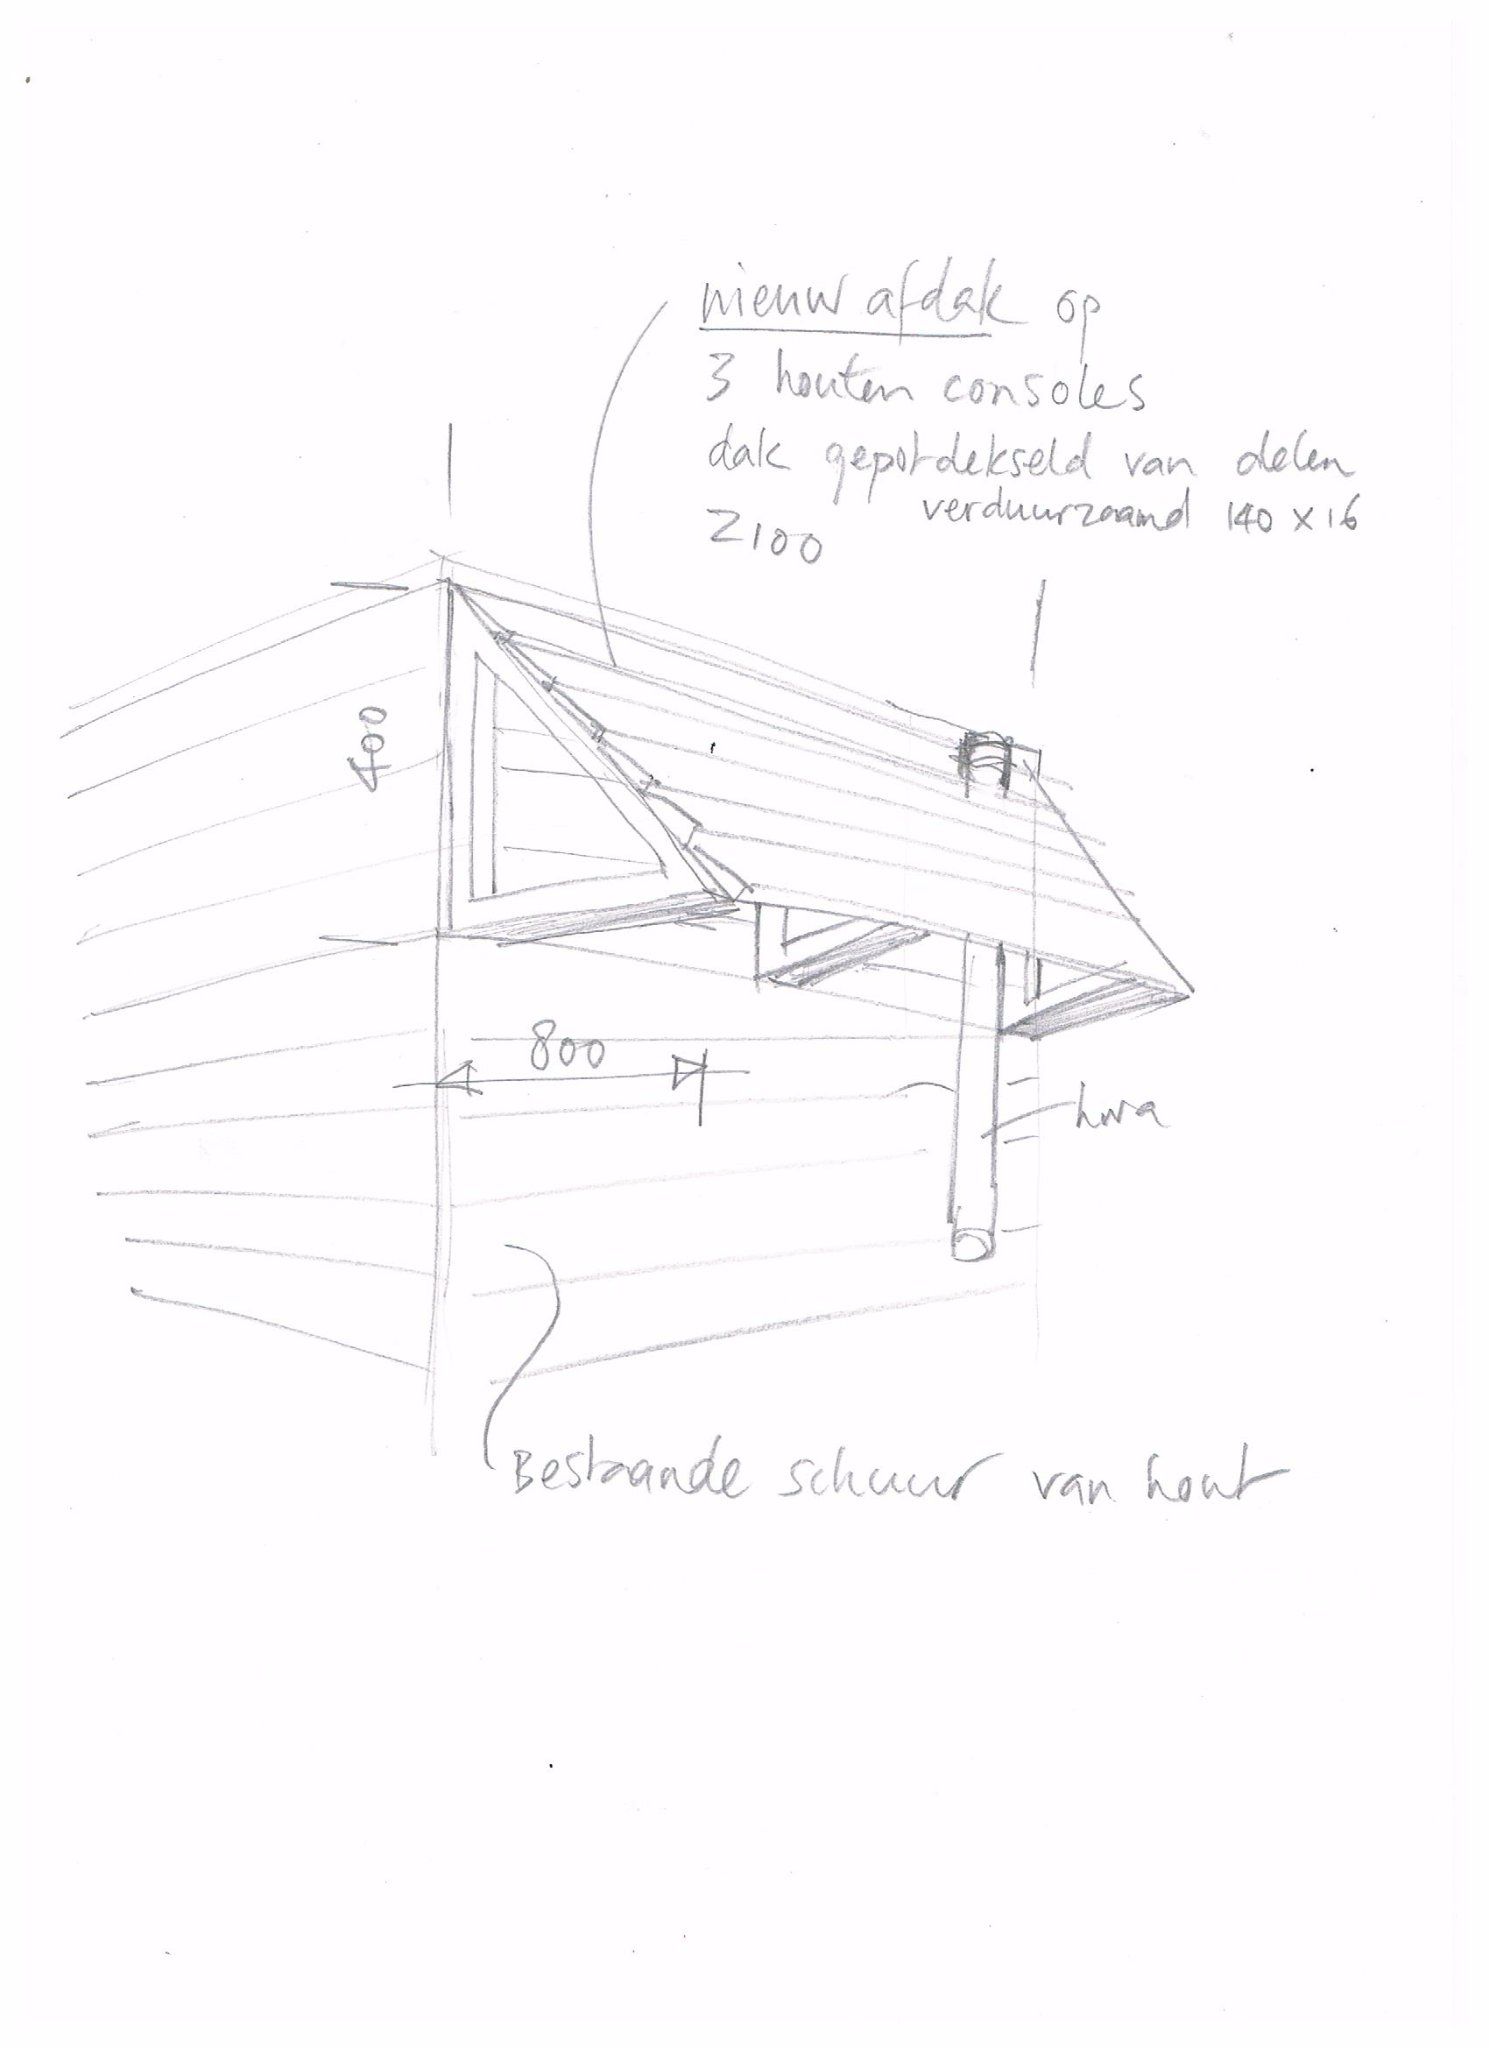 nieuw afdak op
3 houten consoles
dak gepotdekseld van delen
verduurzaamd 140 x 16
2100
400
800
hwa
Bestaande schuur van hout